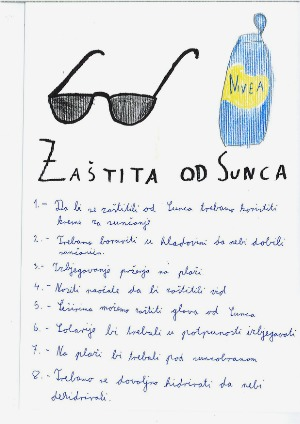 NIVEA
ZAŠTITA OD SUNCA
1.- Da bi se zaštitili od Sunca trebamo koristiti
kreme za sunčanje
2.- Trebamo boraviti u hladovini da nebi dobili
sunčanicu.
3.- Izbjegavanje na plaži
4.- Nositi naočale da bi zaštitili vid
5.- možemo zaštiti glavu od Sunca
6.- Solarije bi trebali u potpunosti izbjegavati
7.- Na plaži bi trebali pod suncobranom
8.- Trebamo se dovoljno hidrirati da nebi
dehidrirali.